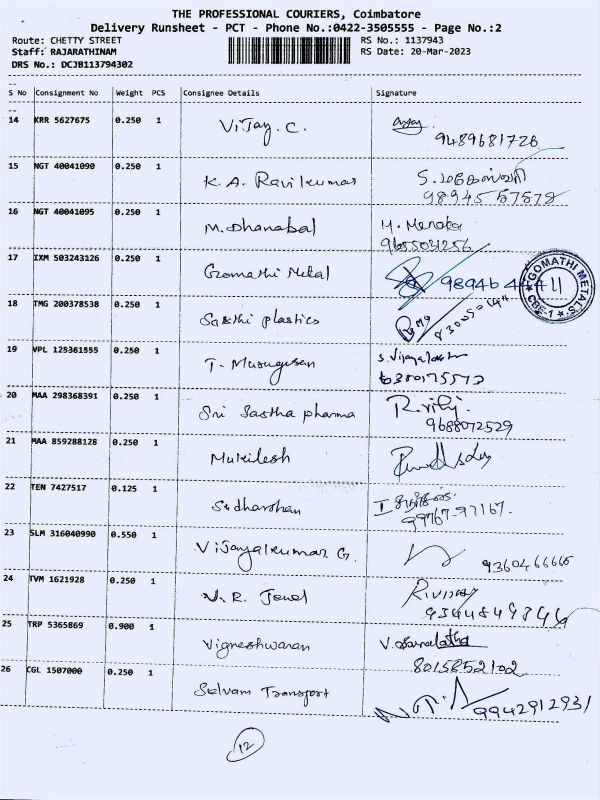 THE PROFESSIONAL COURIERS, Coimbatore
Delivery Runsheet - PCT - Phone No.:0422-3505555 - Page No.:2
Route: CHETTY STREET
RS No.: 1137943
Staff: RAJARATHINAM
RS Date: 20-Mar-2023
DRS No.: DCJB113794302
S No Consignment No Weight PCS Consignee Details Signature
14 KRR 5627675 0.250 1 Vijay. C.
9489681728
15 NGT 40041090 0.250 1 K. A. Ravikumar
98945 57578
16 NGT 40041095 0.250 1 M. Dhanabal M. Menaka
9655031256
17 IXM 503243126 0.250 1 Gomathi Metal 98946 44411
GOMATHI METALS
CBE-1
18 TMG 200378538 0.250 1 Sasthi plastics
19 VPL 125361555 0.250 1 T. Murugesan S. Vijayalakshmi
6380175573
20 MAA 298368391 0.250 1 Sri Sastha pharma
9688072529
21 MAA 859288128 0.250 1 Mukilesh
22 TEN 7427517 0.125 1 Sudharshan
99767-97167.
23 SLM 316040990 0.550 1 Vijayakumar G.
9360466666
24 TVM 1621928 0.250 1 V. R. Jewel
25 TRP 5365869 0.900 1 Vigneshwaran V.
8015852102
26 CGL 1507000 0.250 1 Selvam Transport
9942912931
12